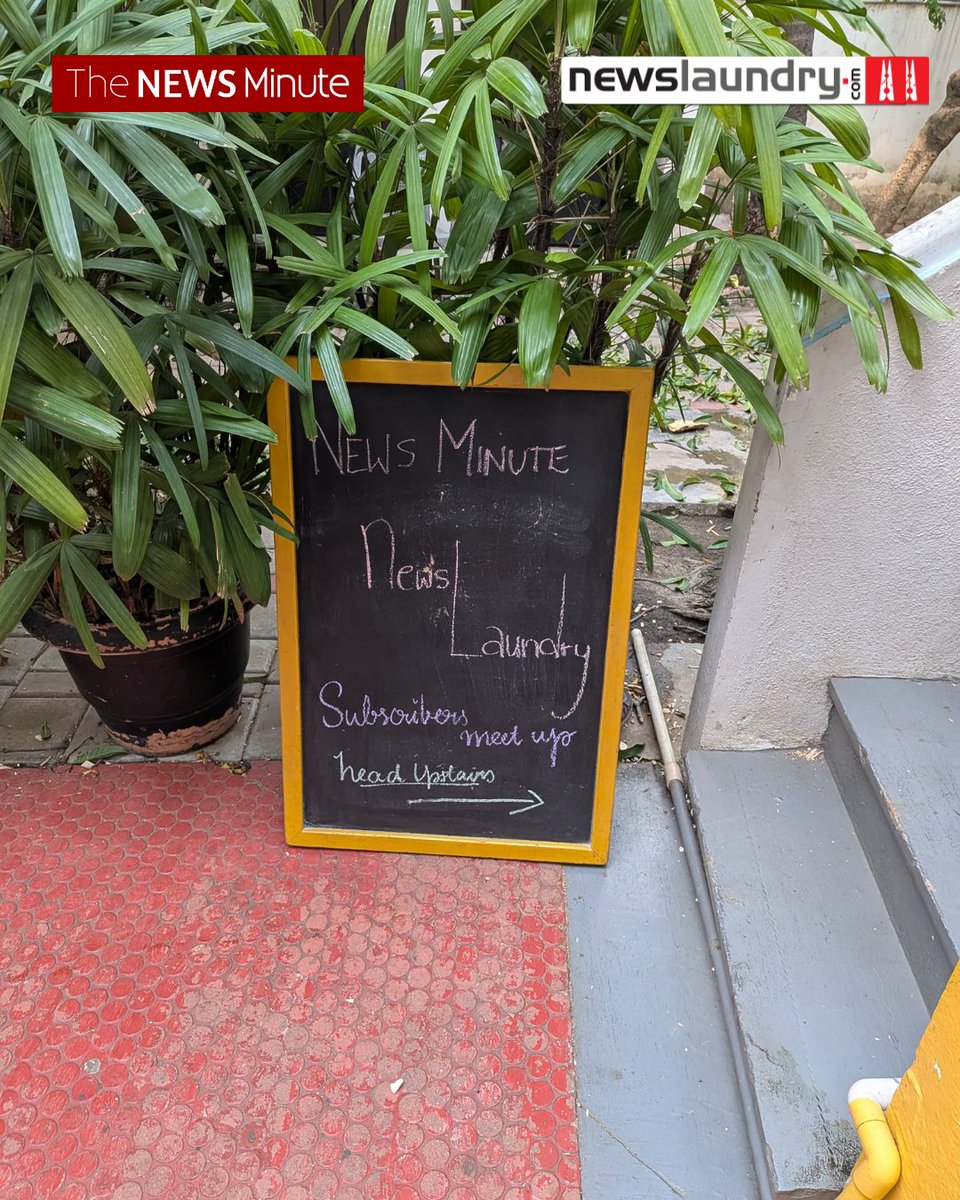 The NEWS Minute
newslaundry.com
NEWS MINUTE
News
Laundry
Subscribers
meet up
head Upstairs